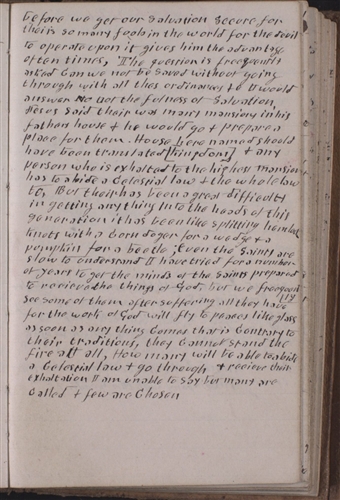 before we get our Salvation Secure for
their is so many fools in the world for the devil
to operate upon it gives him the advantage
often times, The question is frequently
asked Can we not be Saved without going
through with all thes ordinances &c I would
answer No not the fulness of Salvation,
Jesus Said their was many mansions in his
fathers house & he would go & prepare a
place for them. House here named should
have been translated [Kingdom] & any
person who is exhalted to the highest mansion
has to abide a Celestial law & the whole law
to, But their has been a great difficulty
in getting anything into the heads of this
generation it has been like splitting hemlock
knots with a Corn doger for a wedge & a
pumpkin for a beetle, Even the Saints are
slow to understand I have tried for a number
of years to get the minds of the Saints prepared
to recieve the things of God, but we frequently
see some of them after suffering all they have
for the work of God will fly to peaces like glass
as soon as any thing Comes that is Contrary to
their traditions, they Cannot stand the
fire at all, How many will be able to abide
a Celestial law & go through & recieve their
exhaltation I am unable to say but many are
Called & few are Chosen